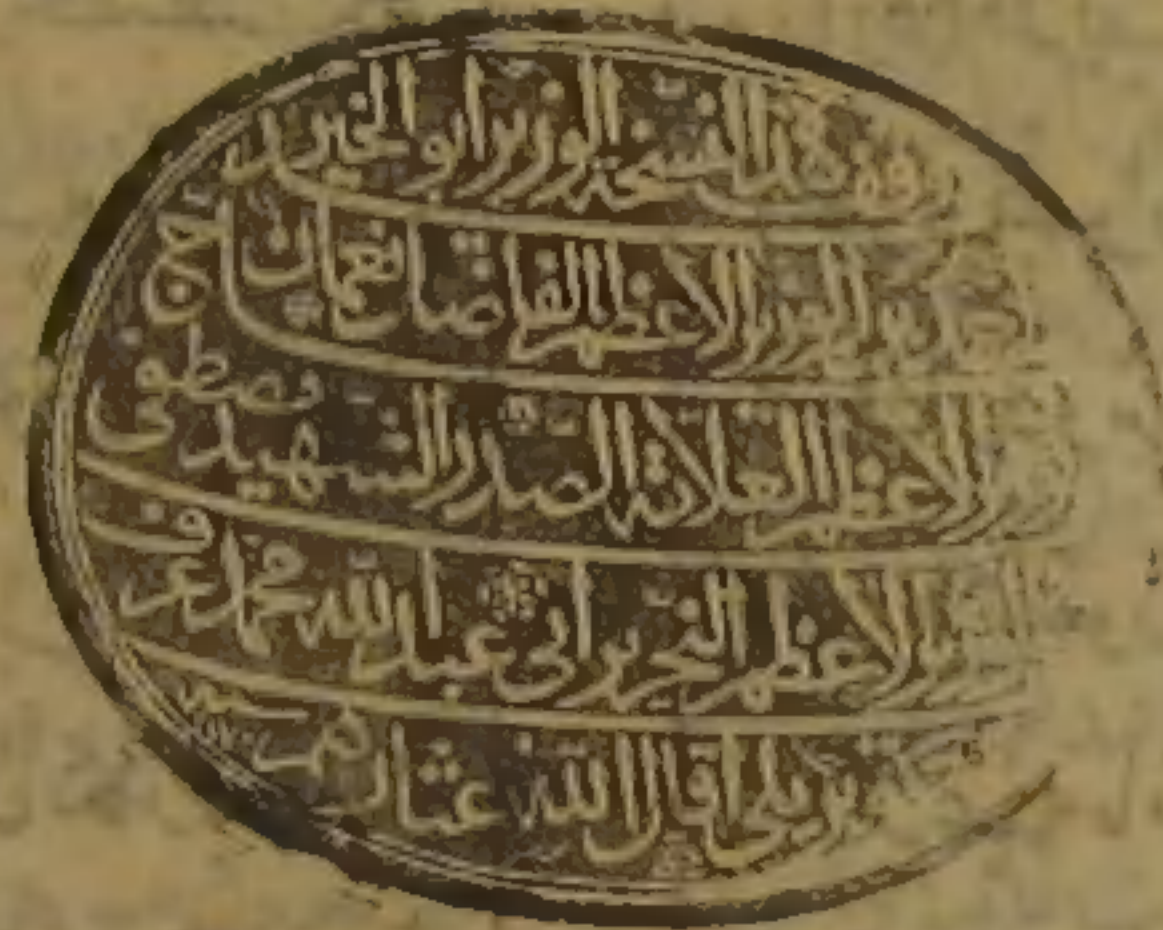 وقف هذا النسخة الوزير ابو الخير
احمد بن الوزير الاعظم الفاضل نعمان
الوزير الاعظم العلامة الصدر الشهيد مصطفى
الوزير الاعظم النحرير ابي عبد الله محمد عرف
بكوپريلي اقال الله عثارهم